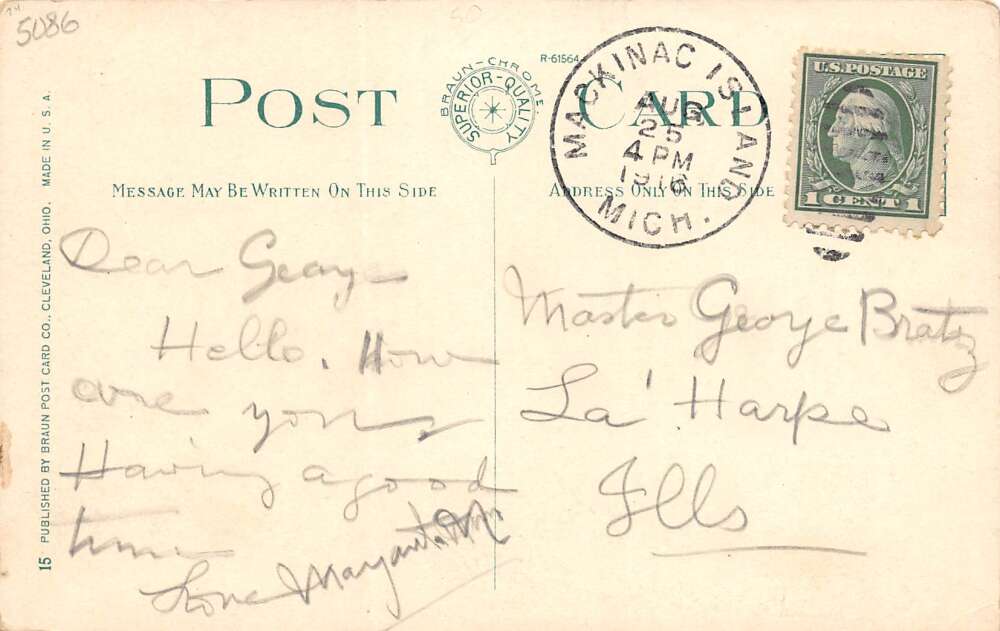 5086
POST CARD
BRAUN-CHROME
SUPERIOR-QUALITY
R-61564
MACKINAC ISLAND
AUG
25
4 PM
1916
MICH.
U.S. POSTAGE
1 CENT 1
MESSAGE MAY BE WRITTEN ON THIS SIDE
ADDRESS ONLY ON THIS SIDE
15 PUBLISHED BY BRAUN POST CARD CO., CLEVELAND, OHIO. MADE IN U.S.A.
Dear George
Hello. How
are you
Having a good
time
Love Margaret
Master George Bratz
La' Harpe
Ills